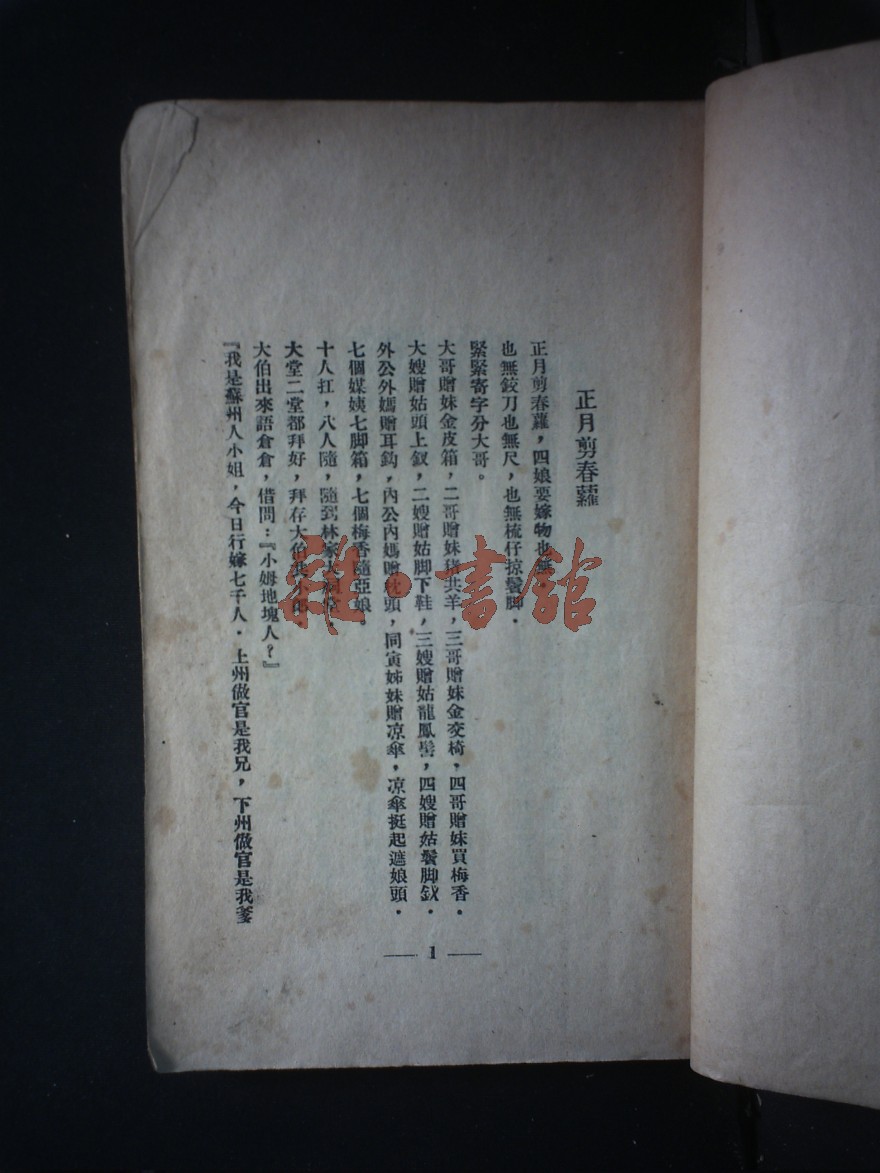 正月剪春蘿
正月剪春蘿，四娘要嫁物也無．
也無鉸刀也無尺，也無梳仔掠鬢脚．
緊緊寄字分大哥。
大哥贈妹金皮箱，二哥贈妹猪共羊，三哥贈妹金交椅，四哥贈妹買梅香．
大嫂贈姑頭上釵，二嫂贈姑脚下鞋，三嫂贈姑龍鳳髻，四嫂贈姑鬢脚釵．
外公外媽贈耳鈎，內公內媽贈枕頭，同寅姊妹贈凉傘，凉傘挺起遮娘頭．
七個媒姨七脚箱，七個梅香隨亞娘．
十人扛，八人隨，隨到林家大祠堂．
大堂二堂都拜好，拜存大伯
大伯出來語倉倉，借問：『小姆地塊人？』
『我是蘇州人小姐，今日行嫁七千人．上州做官是我兄，下州做官是我爹
— 1 —
雜·書館